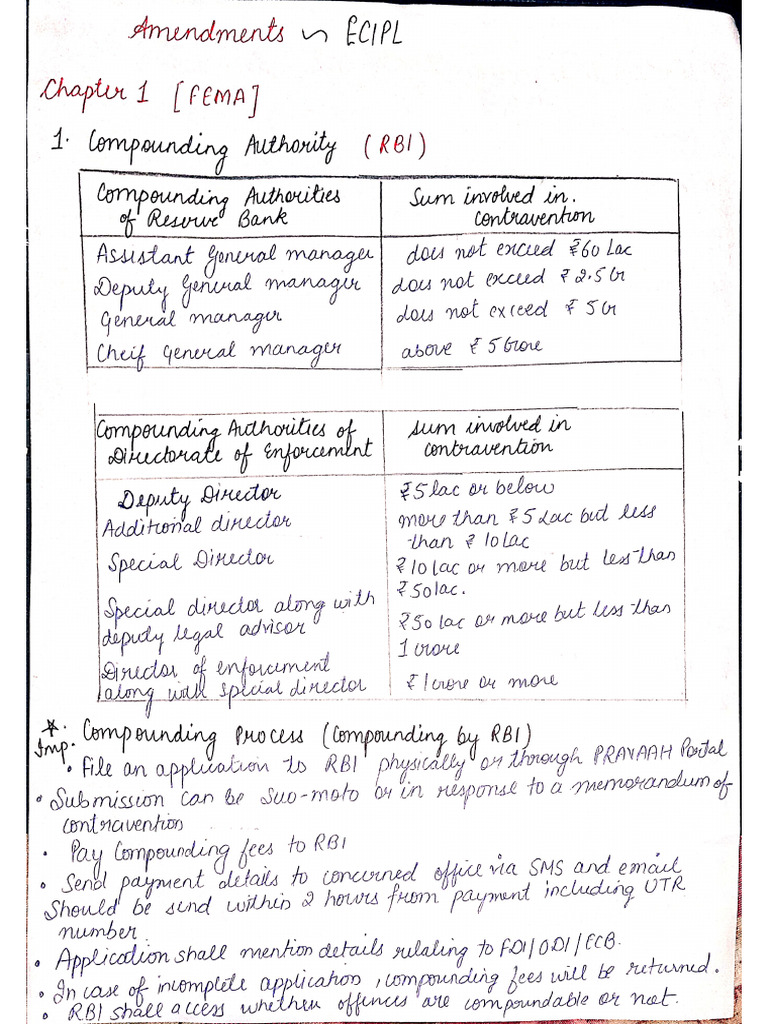 Amendments ~ ECIPL
Chapter 1 [FEMA]
1. Compounding Authority (RBI)
Compounding Authorities of Reserve Bank | Sum involved in. contravention
Assistant General manager | does not exceed ₹60 Lac
Deputy General manager | does not exceed ₹2.5 Cr
General manager | does not exceed ₹5 Cr
Cheif General manager | above ₹5 Crore
Compounding Authorities of Directorate of Enforcement | Sum involved in contravention
Deputy Director | ₹5 lac or below
Additional director | more than ₹5 Lac but less than ₹10 Lac
Special Director | ₹10 lac or more but less than ₹50 lac.
Special director along with deputy legal advisor | ₹50 lac or more but less than 1 crore
Director of enforcement along with special director | ₹1 crore or more
☆. Imp. Compounding Process (Compounding by RBI)
• File an application to RBI physically or through PRAVAAH Portal
• Submission can be Suo-moto or in response to a memorandum of
contravention
• Pay Compounding fees to RBI
• Send payment details to concurned office via SMS and email
Should be send within 2 hours from payment including UTR
number
• Application shall mention details relating to FDI/ODI/ECB.
• In case of incomplete application, compounding fees will be returned.
• RBI shall access whether offences are compoundable or not.